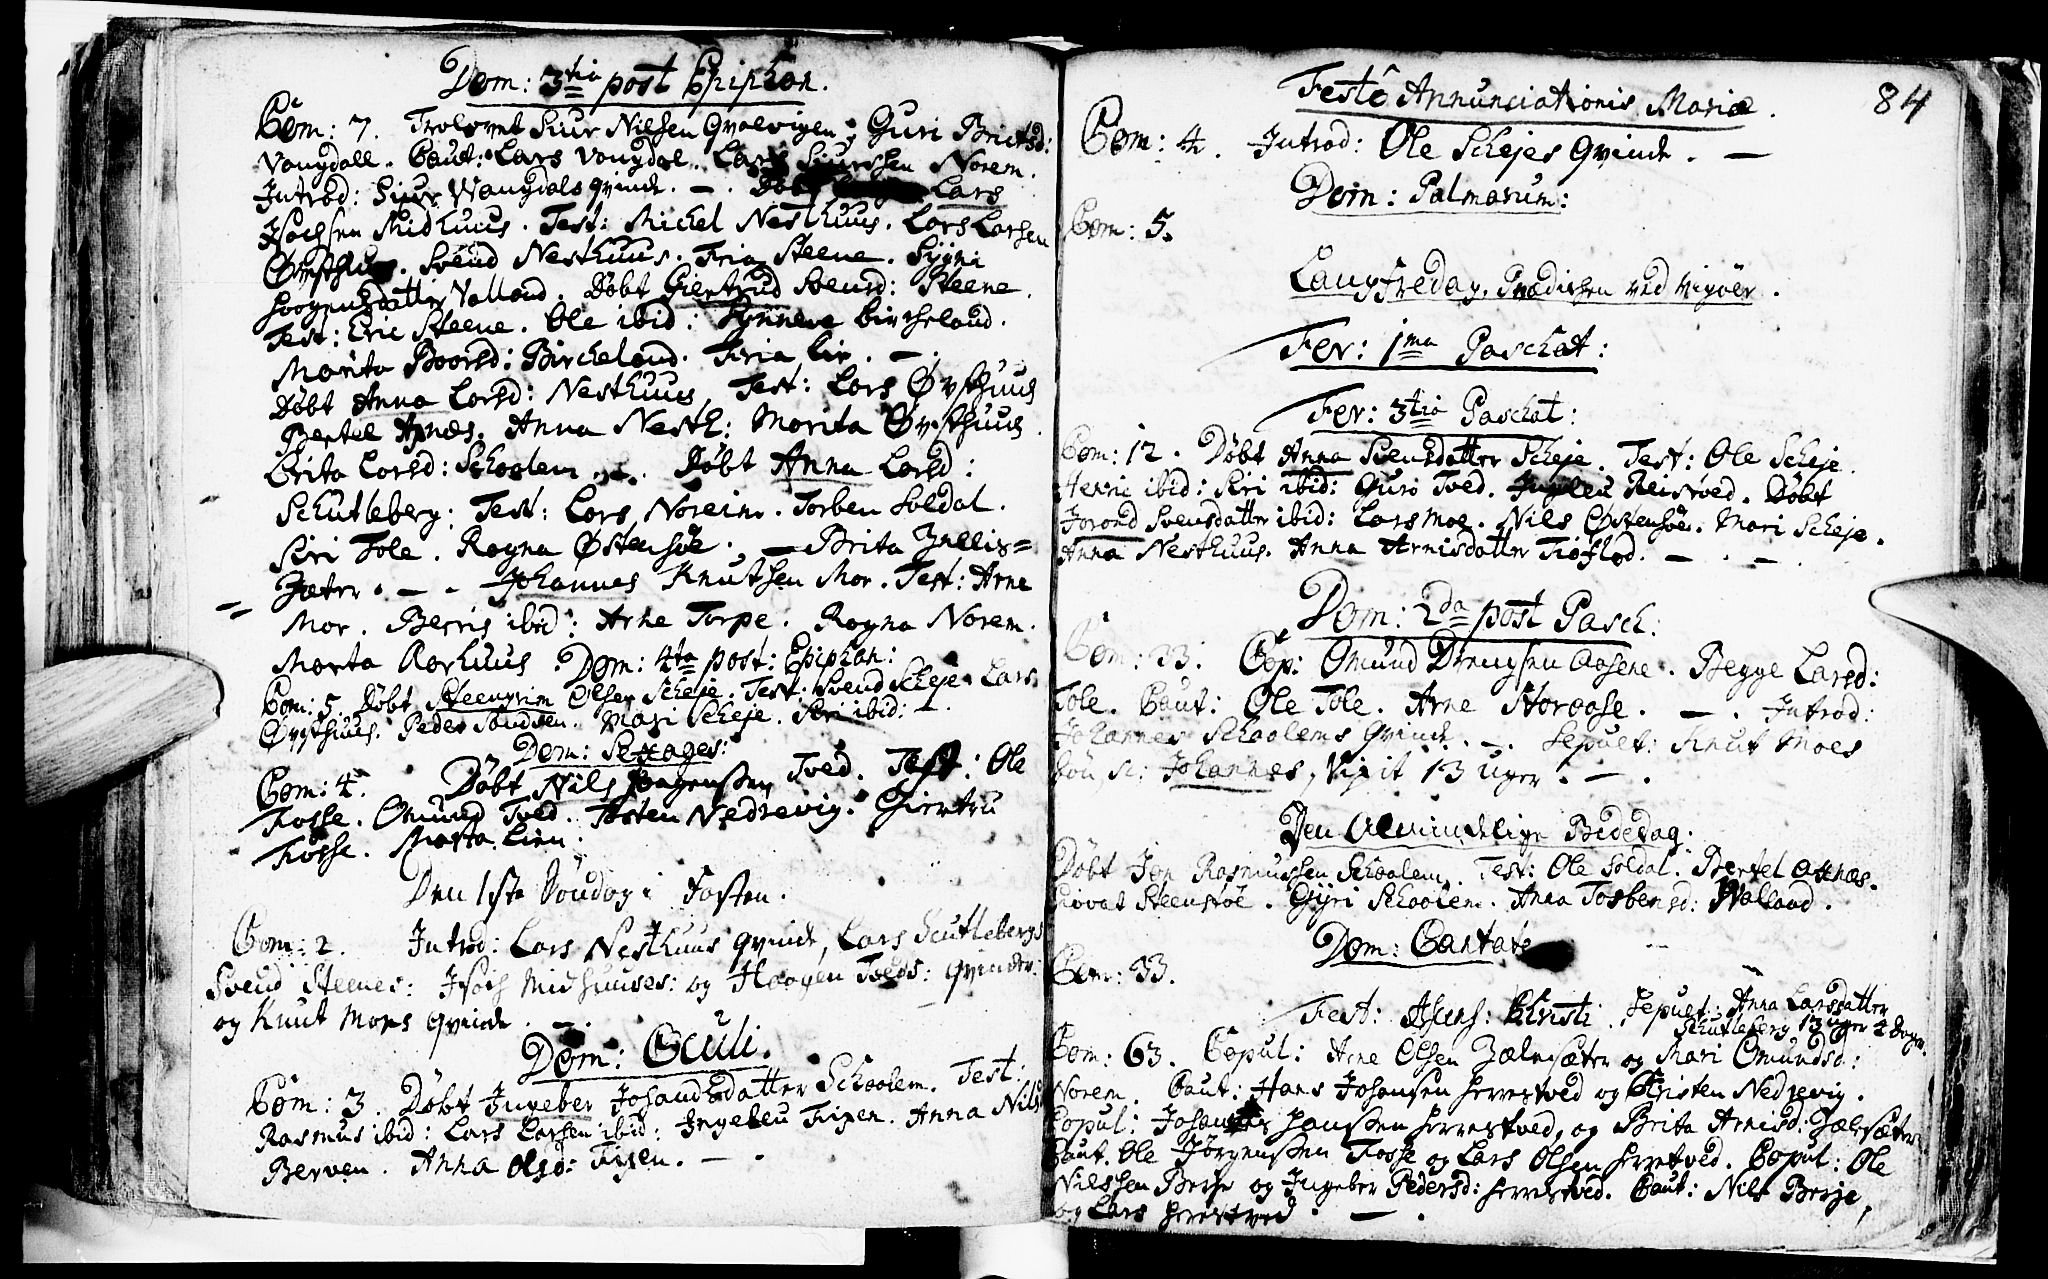 Dom: 3tia post Epiphan.
Com: 7. Trolovet Siur Nilsen Qvalvigen, Guri Brictsd:
Vangdall. Caut: Lars Vangdal. Lars Siurssen Norem.
Introd: Siur Wangdals qvinde. — . Døbt Lars
Isachsen Midhuus. Test: Michel Nesthuus. Lars Larsen
Øvsthuus. Svend Nesthuus. Steene. Sygni
Haagensdatter Valland. Døbt Giertrud Svensd: Steene.
Test: Eric Steene. Ole ibid: Synneve Bircheland.
Marita Boorsd: Bircheland. Siria Lie. — .
Døbt Anna Larsd: Nesthuus, Test: Lars Øvsthuus
Bertel Agnæs. Anna Nesth: Marita Øvsthuus.
Brita Larsd: Schaalem. — . Døbt Anna Larsd:
Schutleberg: Test: Lars Noreim. Torben Soldal.
Siri Tole. Ragna Østensøe. , — Brita Jellis=
Sæter. — . Johannes Knutsen Mor. Test: Arne
Mor. Berris ibid: Arne Torpe. Ragna Norem.
Marta Rørhuus. Dom: 4ta post: Epiphan:
Com: 5. Døbt Steengrim Olsen Scheje. Test: Svend Scheje. Lars
Øvsthuus. Peder Sandven. Mari Scheje. Siri ibid: — .
Dom: Sexages:
Com: 4. Døbt Nils Haagenssen Tved. Test: Ole
Fosse. Omund Tved. Tosten Nedrevig. Giertru
Fosse. Marta Lien.
Den 1ste Søndag i Fasten.
Com: 2. Introd: Lars Nesthuus qvinde, Lars Scutlebergs
Svend Steenes: Isach Midhuuses: og Haagen Tveds: qvinder:
og Knut Mors qvinde. — .
Dom: Oculi.
Com: 3. Døbt Ingeber Johansdatter Schaalem. Test:
Rasmus ibid: Lars Larsen ibid: Ingebeu Fixen. Anna Nilsd
Berven. Anna Olsd: Fixen. — .
84
Festo Annunciationis Mariæ.
Com: 4. Introd: Ole Schejes Qvinde. —
Dom: Palmarum:
Com: 5.
Langfredag. Prædichen ved Vigøer.
Fer: 1ma Paschat:
Fer: 3tia Paschat:
Com: 12. Døbt Anna Svensdatter Scheje. Test: Ole Scheje.
Henric ibid: Siri ibid: Guro Tved. Ingebeu Reistved. Døbt
Jorond Svensdatter ibid: Lars Moe. Nils Østensøe. Mari Scheje.
Anna Nesthuus. Anna Arnisdatter Tiøflod. — . —
Dom: 2da post Pasch:
Com: 33. Cop: Omund Drengsen Aasene. Begge Larsd:
Tole. Caut: Ole Tole. Arne Storaase. — . Introd:
Johannes Schaalems Qvinde. — . Sepult: Knut Moes
søn, N: Johannes, vixit 13 uger. — .
Den Almindelige Bededag:
Døbt Jon Rasmussen Schaalem. Test: Ole Soldal. Bertel Agnæs.
Siovat Steenstøe. Gyri Schaalem. Anna Torbensd: Walland.
Dom: Cantate
Com: 33.
Fest: Ascens: Christi. Sepult: Anna Larsdatter
Schutleberg 13 uger 2 Dage.
Com: 63. Copul: Arne Olsen Jælesæter og Mari Omundsd:
Norem. Caut: Hans Johansen Herrestved og Christen Nedrevig.
Copul: Johannes Hanssen Herrestved, og Brita Arnisd: Jælesæter
Caut. Ole Jørgenssen Fosse og Lars Olsen Herrestved. Copul: Ole
Nilssen Berje og Ingeber Pedersd: Herrestved. Caut: Nils Berje,
og Lars Herrestved. — .